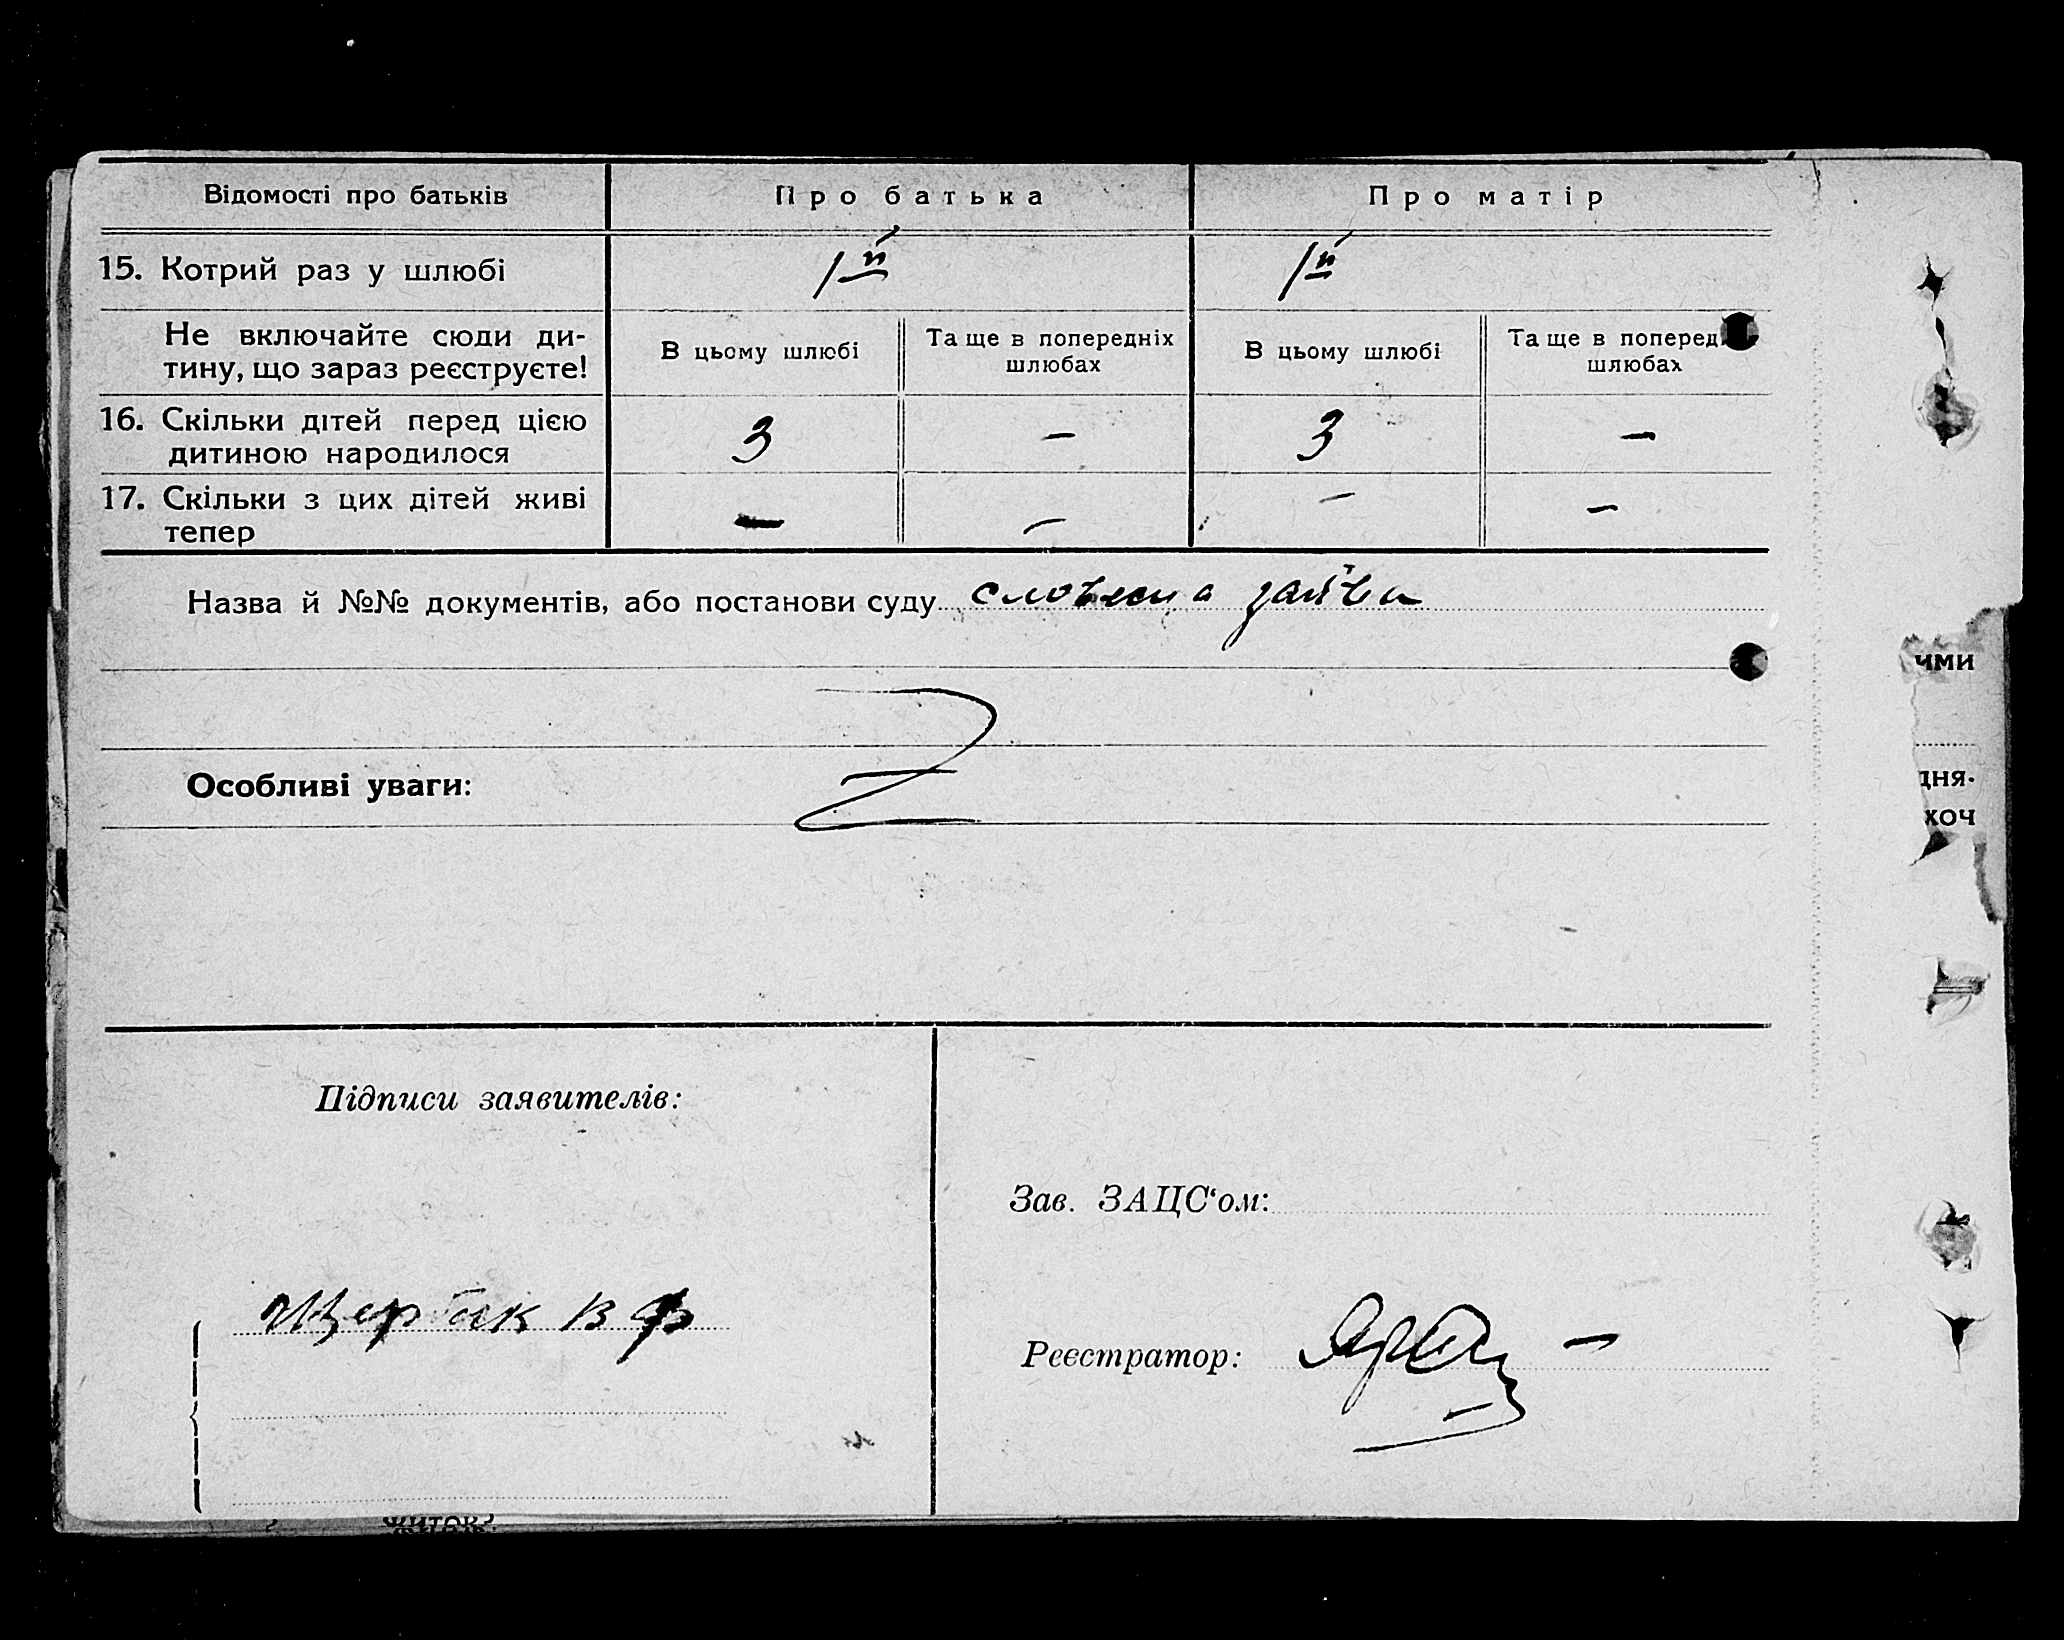 Відомості про батьків Про батька Про матір
15. Котрий раз у шлюбі 1й 1й
Не включайте сюди ди-
тину, що зараз реєструєте!
В цьому шлюбі Та ще в попередніх шлюбах В цьому шлюбі Та ще в поперед шлюбах
16. Скільки дітей перед цією
дитиною народилося 3 — 3 —
17. Скільки з цих дітей живі
тепер — — — —
Назва й №№ документів, або постанови суду словесна заява
ими
Особливі уваги:
дня-
хоч
Підписи заявителів:
Зав. ЗАЦС‘ом:
Щербак В Ф
Реєстратор:
житок?